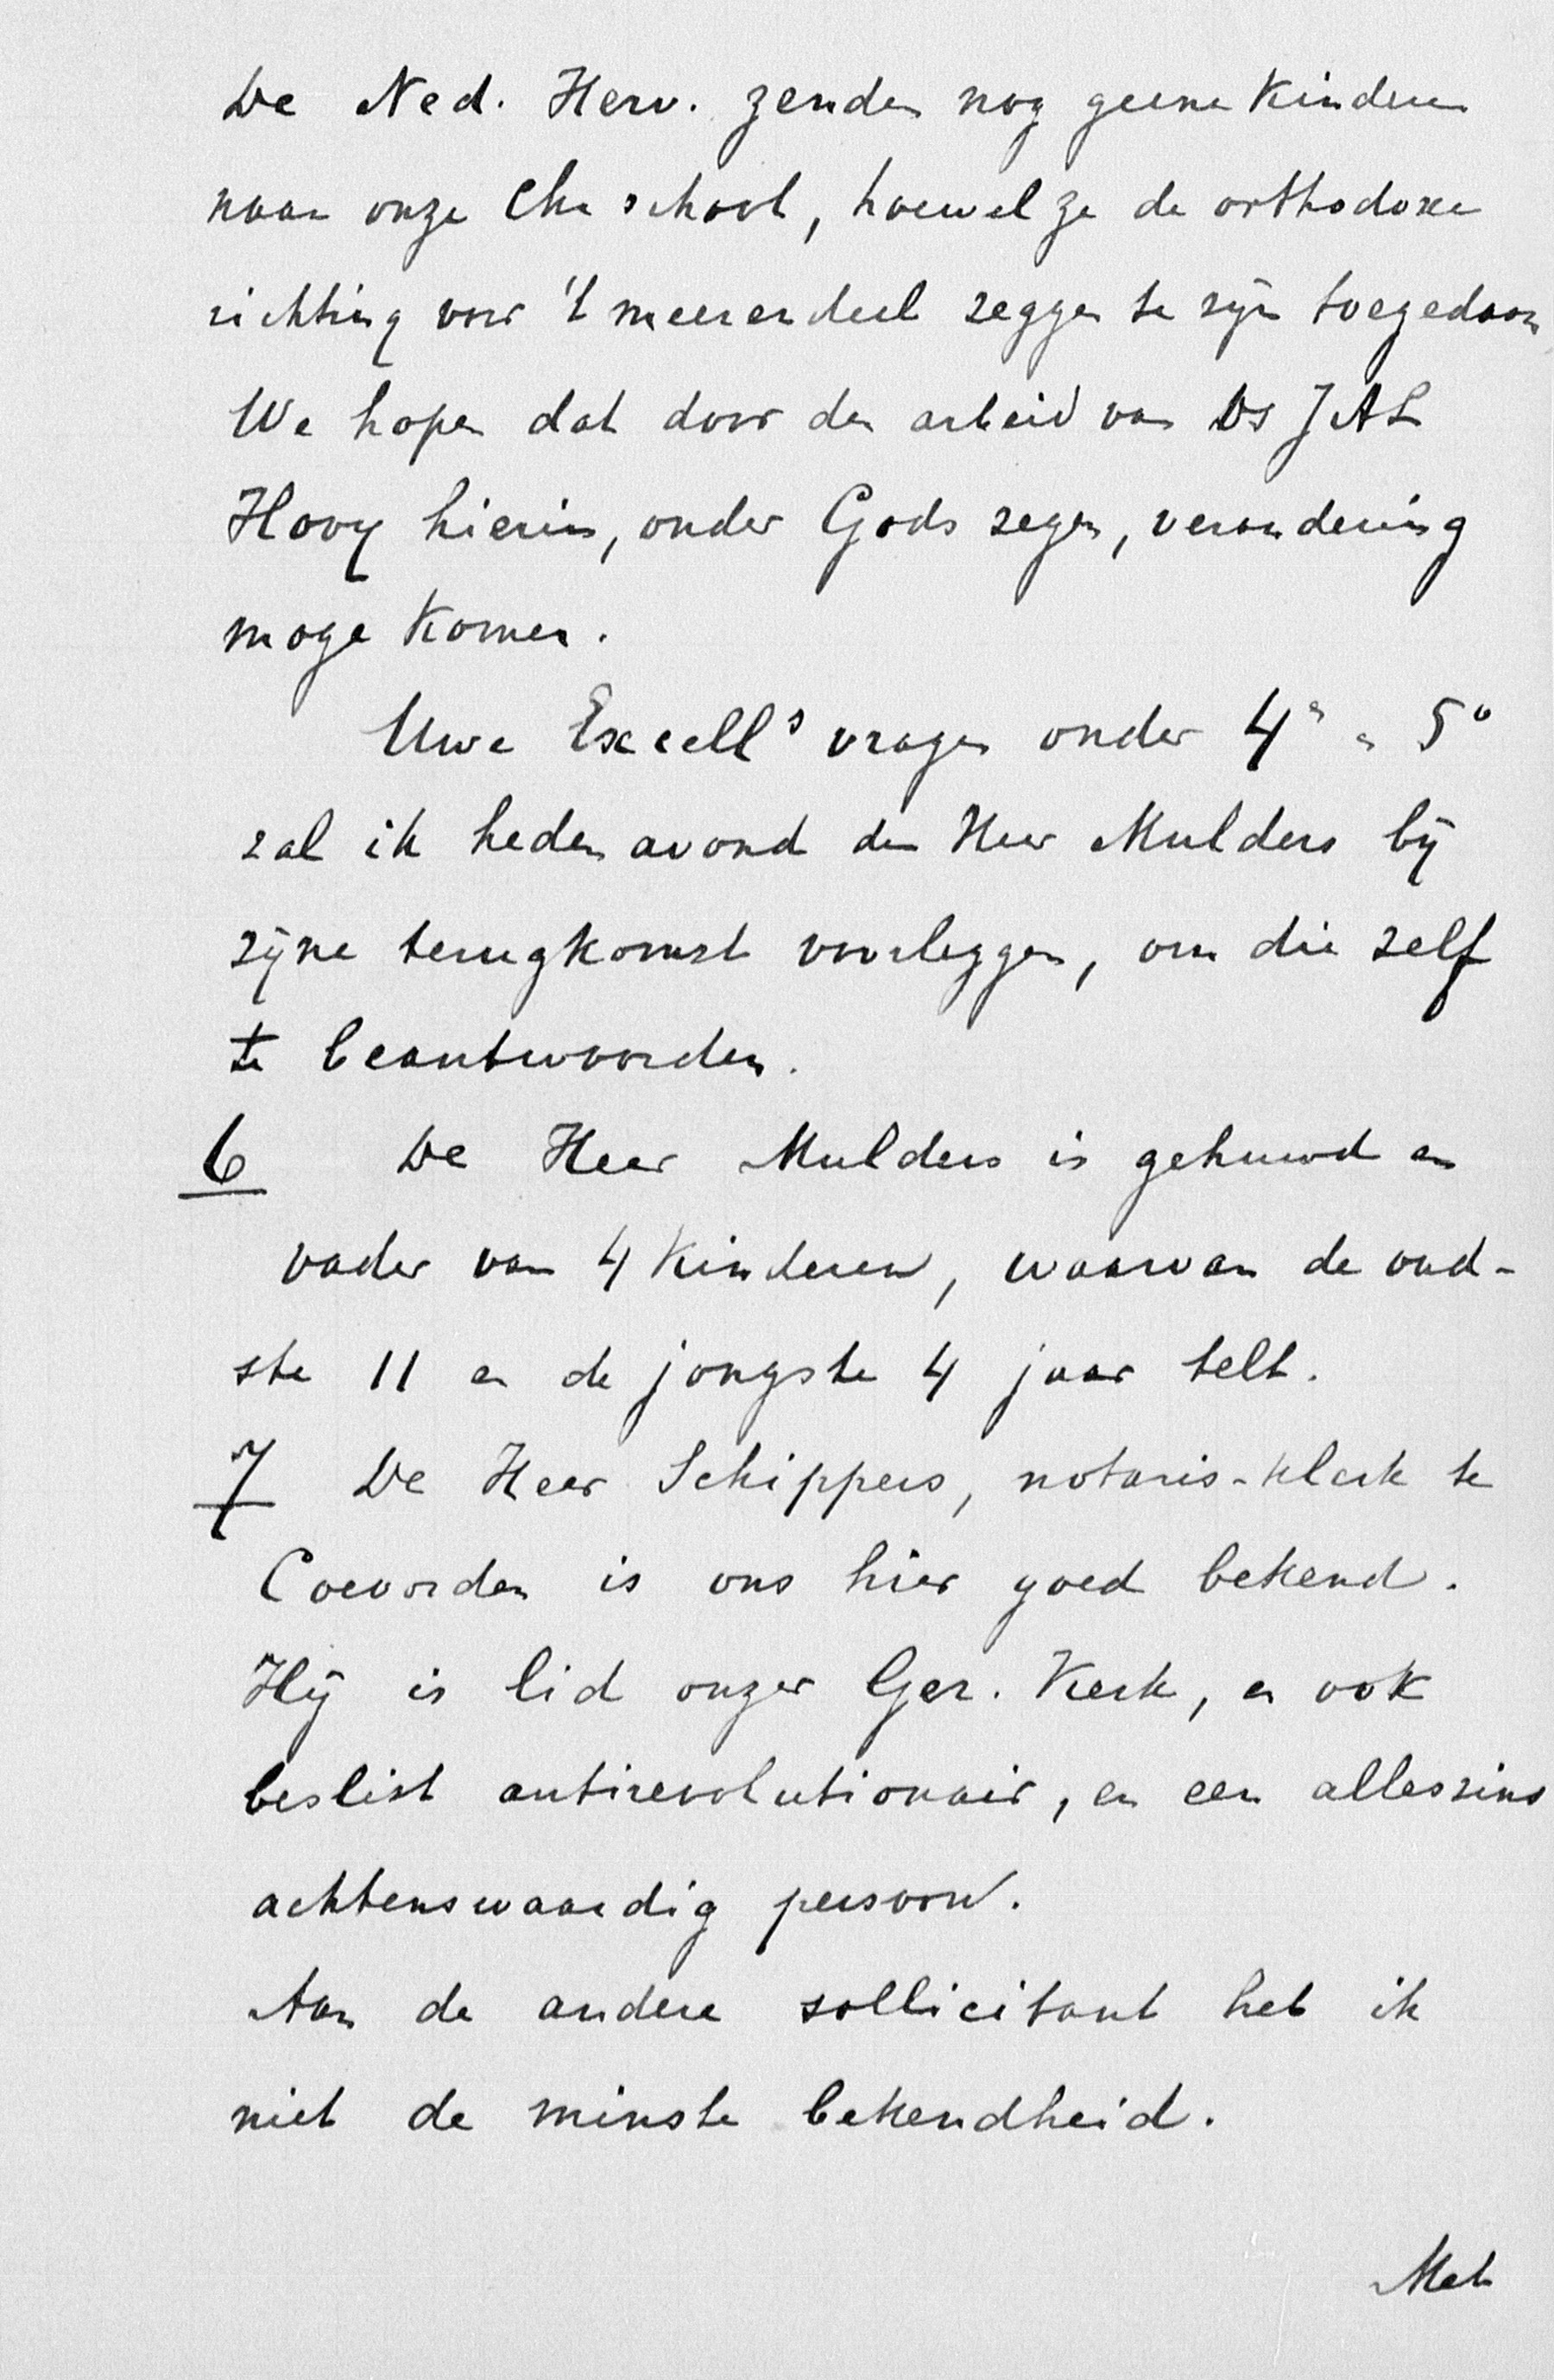 De Ned. Herv. zenden nog geene Kinderen
naar onze Chr school, hoewel ze de orthodoxe
richting voor 't meerendeel zeggen te zijn toegedaan
We hopen dat door den arbeid van Ds J A L
Hovy hierin, onder Gods zegen, verandering
moge Komen.
Uwe Excells vragen onder 4° en 5°
zal ik heden avond den Heer Mulders bij
zijne terugkomst voorleggen, om die zelf
te beantwoorden.
6 De Heer Mulders is gehuwd en
vader van 4 Kinderen, waarvan de oud-
ste 11 en de jongste 4 jaar telt.
7 De Heer Schippers, notaris-klerk te
Coevorden is ons hier goed bekend.
Hij is lid onzer Ger. Kerk, en ook
beslist antirevolutionair, en een alleszins
achtenswaardig persoon.
Aan de andere sollicitant heb ik
niet de minste bekendheid.
Met